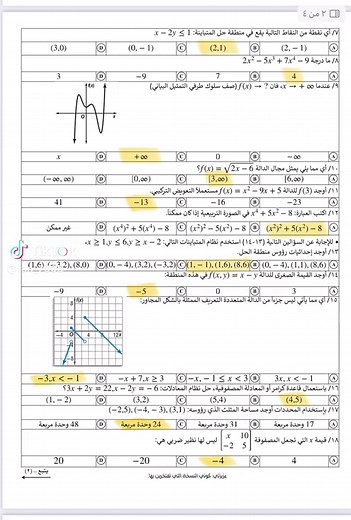 ٣ من ٤
٧/ أي نقطة من النقاط التالية يقع في منطقة حل المتباينة: x − 2y ≤ 1
(3,0) D (0, −1) C (2,1) B (2, −1) A
٨/ ما درجة 2x² − 5x³ + 7x⁴ − 9
3 D −9 C 7 B 4 A
٩/ عندما x → +∞، فان f(x) → ? (صف سلوك طرفي التمثيل البياني)
f(x)
x D +∞ C 0 B −∞ A
١٠/ أي مما يلي يمثل مجال الدالة f(x) = √2x − 6؟
(−∞, ∞) D [0,∞) C [3,∞) B [6,∞) A
١١/ أوجد f(3) للدالة f(x) = x² − 9x + 5 مستعملاً التعويض التركيبي.
41 D −13 C −16 B −23 A
١٢/ اكتب العبارة: x⁴ + 5x² − 8 في الصورة التربيعية إذا كان ممكناً.
غير ممكن D (x⁴)² + 5(x⁴) − 8 C (x²)² − 5(x²) − 8 B (x²)² + 5(x²) − 8 A
• للإجابة عن السؤالين التالية (١٣-١٤) استخدم نظام المتباينات التالي: x ≥ 1, y ≤ 6, y ≥ x − 2
١٣/ أوجد إحداثيات رؤوس منطقة الحل.
(1,6), (−3,2), (8,0) D (0, −4), (3,2), (−3,2) C (1, −1), (1,6), (8,6) B (0, −4), (1,1), (8,6) A
١٤/ أوجد القيمة الصغرى للدالة f(x, y) = x − y في هذه المنطقة:
−9 D −5 C 0 B A
١٥/ أي مما يأتي ليس جزءاً من الدالة المتعددة التعريف الممثلة بالشكل المجاور:
−3, x < −1 D −x + 7, x ≥ 3 C −x, −1 ≤ x < 3 B 3x, x < −1 A
١٦/ باستعمال قاعدة كرامر أو المعادلة المصفوفية، حل نظام المعادلات: 3x + 2y = 22, x − 2y = −6؟
(1, −2) D (3,2) C (5,4) B (4,5) A
١٧/ باستخدام المحددات أوجد مساحة المثلث الذي رؤوسه: (−2,5), (−4, −3), (3,1)
48 وحدة مربعة D 24 وحدة مربعة C 31 وحدة مربعة B 17 وحدة مربعة A
١٨/ قيمة x التي تجعل المصفوفة [x 10 −2 5] ليس لها نظير ضربي هي:
20 D −20 C −4 B 4 A
يتبع – (٢)
عزيزتي: كوني النسخة التي تفتخرين بها.